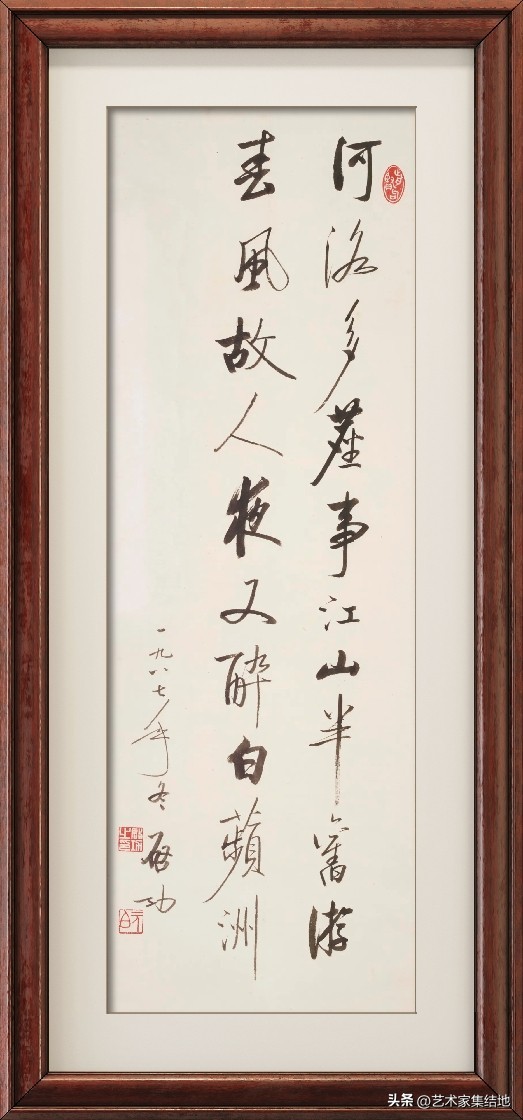 河洛多塵事江山半舊游
春風故人夜又醉白蘋洲
一九八七年冬
启功
头条 @艺术家集结地